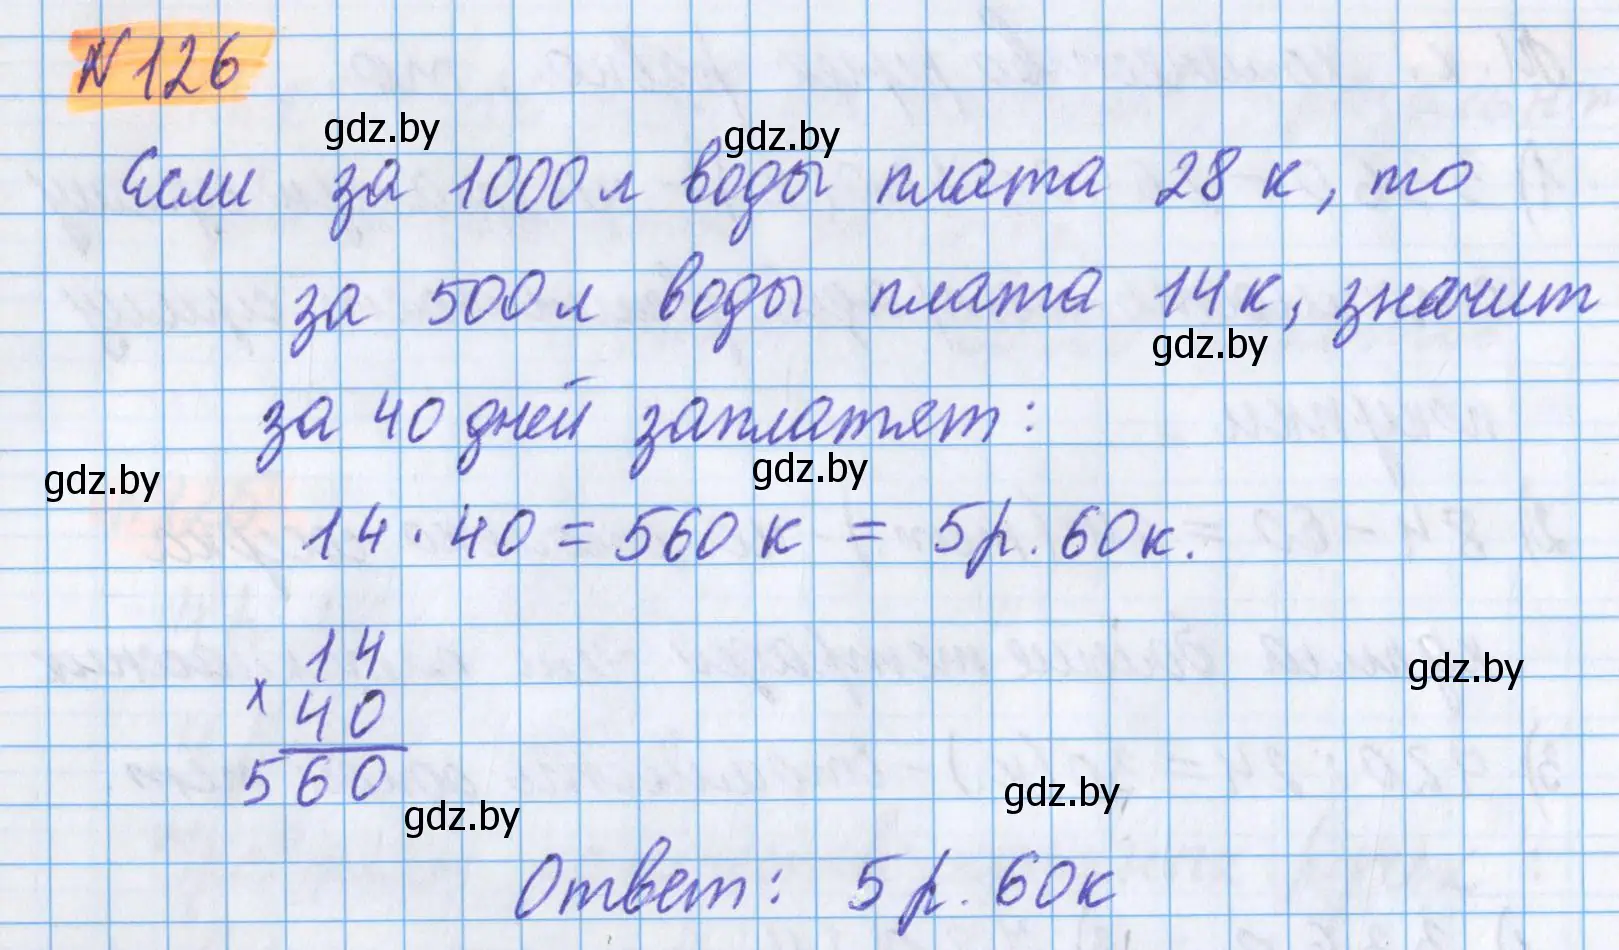 № 126
gdz.by gdz.by
Если за 1000 л воды плата 28 к, то
за 500 л воды плата 14 к, значит
gdz.by
за 40 дней заплатят:
gdz.by gdz.by
14 · 40 = 560 к = 5 р. 60 к.
14
gdz.by
× 40
560
gdz.by gdz.by
Ответ: 5 р. 60 к